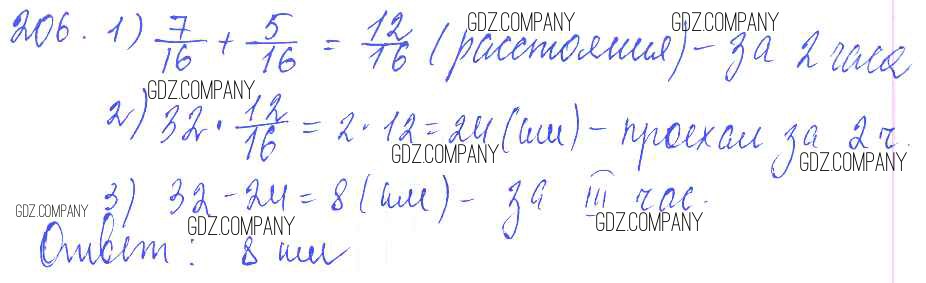 206. 1) 7/16 + 5/16 = 12/16 (расстояния) - за 2 часа
2) 32 · 12/16 = 2 · 12 = 24 (км) - проехал за 2 ч.
3) 32 - 24 = 8 (км) - за III час.
Ответ: 8 км
GDZ.COMPANY
GDZ.COMPANY
GDZ.COMPANY
GDZ.COMPANY
GDZ.COMPANY
GDZ.COMPANY
GDZ.COMPANY
GDZ.COMPANY